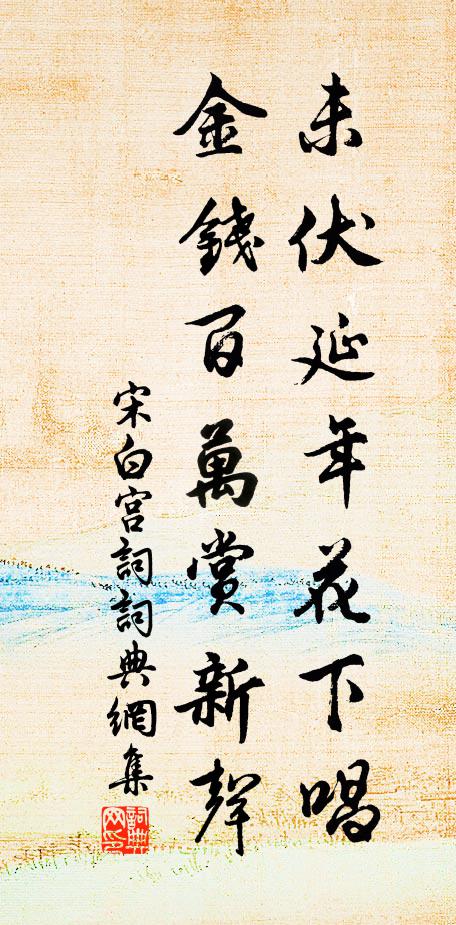 未伏延年花下唱
金錢百萬賞新聲
宋白宫詞詞典網集
詞典网印